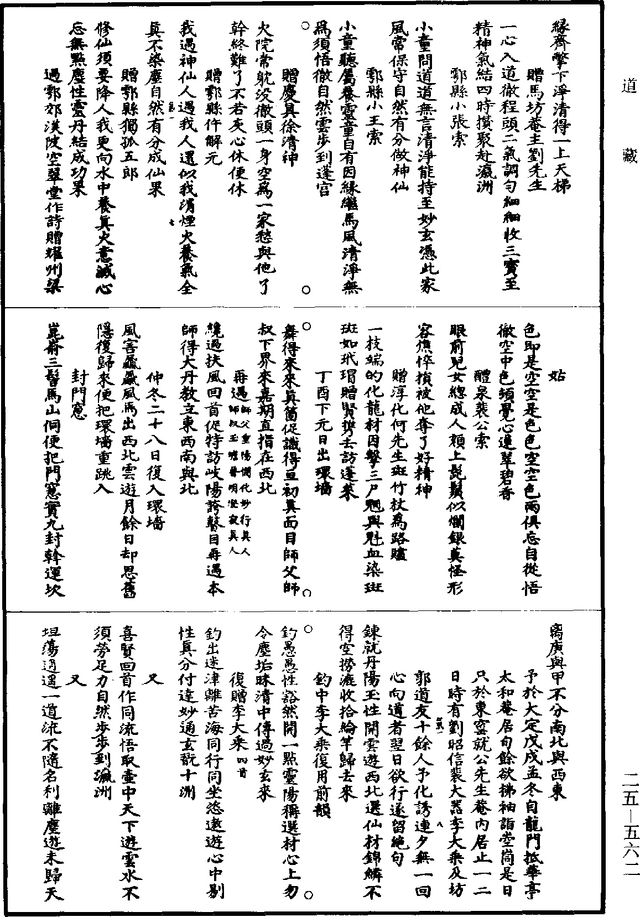 道藏
緣齊擎下淨清得一上天梯
贈馬坊菴主劉先生
一心入道徹程頭二氣調勻細細收三寶至
精神氣結四時攢聚赴瀛洲
鄠縣小張索
小童問道道無言清淨能持至妙玄憑此家
風常保守自然有分做神仙
鄠縣小王索
小童聽屬養靈童自有因緣繼馬風清淨無
為須悟徹自然雲步到蓬宮
贈慶真徐清神
火院常躭沒徹頭一身空為一家愁與他了
幹終難了不若灰心休便休
贈鄠縣仵解元
我過神仙人過我人還似我濱煙火養氣全
真不染塵自然有分成仙果
贈鄠縣獨孤五郎
修仙須要降人我更向水中養真火意誠心
忘無點塵性靈丹結成功果
過鄠郊渼陂空翠堂作詩贈耀州梁
姑
色即是空空是色色空空色兩俱忘自從悟
徹空中色頭覺心蓮翠碧香
醴泉裴公索
眼前兒女總成人頰上髭鬚似爛銀莫怪形
容憔悴損被他奪了好精神
贈淳化何先生斑竹杖為路贐
一枝端的化龍材因擊三尸魍與魁血染斑
斑如玳瑁贈賢攜去訪蓬萊
丁酉下元日出環墻
舞得來來真箇促識得亘初真面目師父師
叔下界來嘉期直指在西北
再過師父重陽憫化妙行真人師叔玉蟾普明澄寂真人
繞過扶風回首促特訪岐陽誇瞽目再過本
師得大丹教立東西南與北
仲冬二十八日復入環墻
風害飍飍風馬出西北雲遊月餘日却思舊
隱復歸來便把環墻重跳入
封門窻
崑崙三髻馬山侗便把門窻實九封幹運坎
离庚與甲不分南北與西東
予於大定戊戌孟冬自龍門抵華亭
太和菴居旬餘欲拂袖詣堂崗是日
只於東窑就公先生菴內居止一二
日時有劉昭信裴大器李大乘及坊
郭道友十餘人予化誘連夕無一回
心向道者翌日欲行遂留絕句
鍊就丹陽玉性開雲遊西北選仙材錦鱗不
得空撈漉收拾綸竿歸去來
鈞中李大乘復用前韻
釣愚愚性豁然開一點靈陽稱選材心上勿
令塵垢昧清中傳過妙玄來
復贈李大乘四首
釣出迷津離苦海同行同坐恣遨遊心中剔
性真分付達妙通玄翫十洲
又
喜賢回首作同流悟取壷中天下遊雲水不
須勞足力自然步步到瀛洲
又
坦蕩逍遥一道流不隨名利離塵遊未歸天
二五—五六二